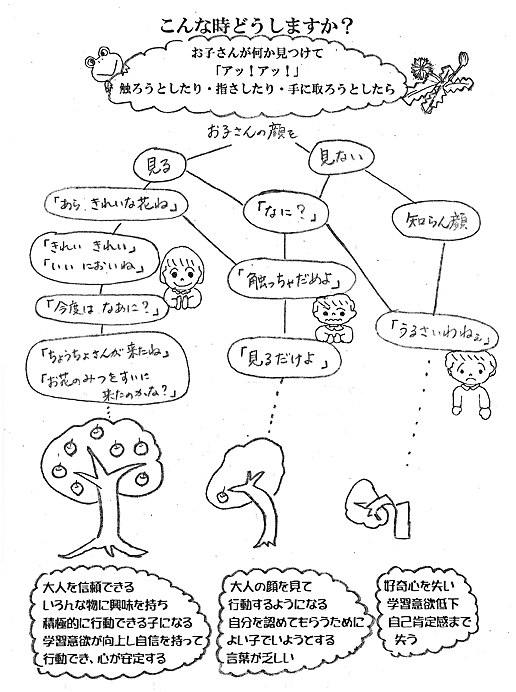 こんな時どうしますか？
お子さんが何か見つけて
「アッ！アッ！」
触ろうとしたり・指さしたり・手に取ろうとしたら
お子さんの顔を
見る
見ない
「あら、きれいな花ね」
「なに？」
知らん顔
「きれい きれい」
「いい においね」
「触っちゃだめよ」
「今度は なあに？」
「うるさいわねぇ」
「ちょうちょさんが来たね」
「お花のみつをすいに
来たのかな？」
「見るだけよ」
大人を信頼できる
いろんな物に興味を持ち
積極的に行動できる子になる
学習意欲が向上し自信を持って
行動でき、心が安定する
大人の顔を見て
行動するようになる
自分を認めてもらうために
よい子でいようとする
言葉が乏しい
好奇心を失い
学習意欲低下
自己肯定感まで
失う